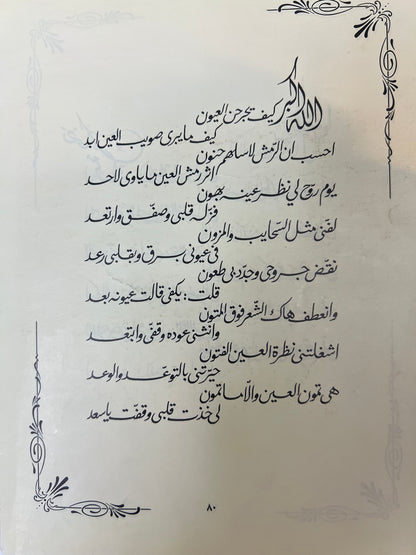 الله أكبر كيف تجرحن العيون
كيف ما يبرى صويب العين ابد
احسب ان الرّمش لاسلهم حنون
اثر رمش العين ما ياوى لاحد
يوم روّح لي نظر عينه بهون
فزّ له قلبي وصفّق وارتعد
لفّني مثل السّحايب والمزون
في عيوني برق وبقلبي رعد
نقّض جروحي وجدّد بي طعون
قلت : يكفي قالت عيونه بعد
وانعطف هاك الشّعر فوق المتون
وانثنى عوده وقفّى وابتعد
اشغلتني نظرة العين الفتون
حيّرتني بالتوعّد والوعد
هي تمون العين والّا ما تمون
لي خذت قلبي وقفّت يا سعد
٨٠